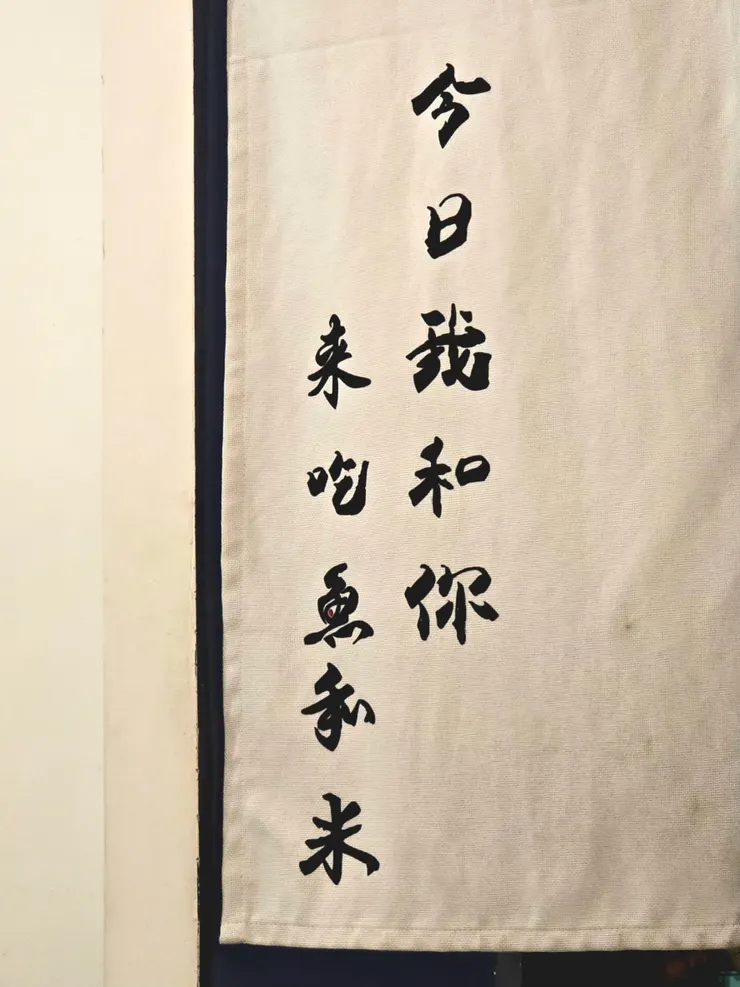 今日我和你
来吃魚和米